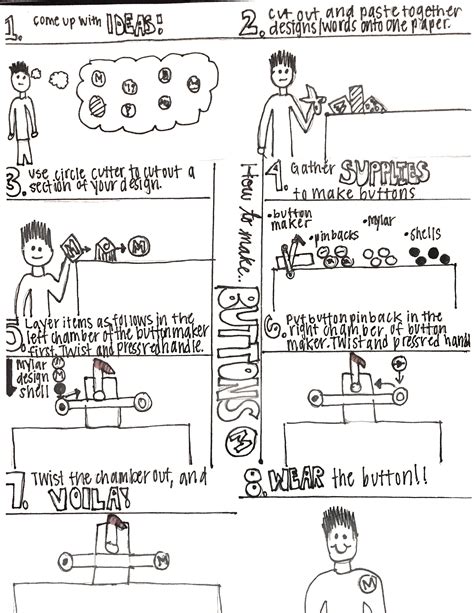 1. come up with IDEAS!
2. cut out and paste together
designs/words onto one paper.
3. use circle cutter to cut out a
section of your design.
M
M
How to make.. BUTTONS
4. Gather SUPPLIES
to make buttons
•button
maker
•pinbacks
•mylar
•shells
5. Layer items as follows in the
left chamber of the button maker
first. Twist and press red handle.
mylar
design
shell
6. Put button pinback in the
right chamber of button
maker. Twist and press red hand
7. Twist the chamber out, and
VOILA!
M
8. WEAR the button!!
M